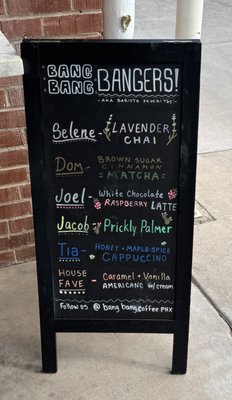 BANG BANG BANGERS!
AKA BARISTA FAVORITES
Selene - LAVENDER CHAI
Dom - BROWN SUGAR CINNAMON MATCHA
Joel - White Chocolate RASPBERRY LATTE
Jacob - Prickly Palmer
Tia - HONEY + MAPLE SPICE CAPPUCCINO
HOUSE FAVE - Caramel + Vanilla AMERICANO w/ cream
Follow us @ bang bang coffee PHX